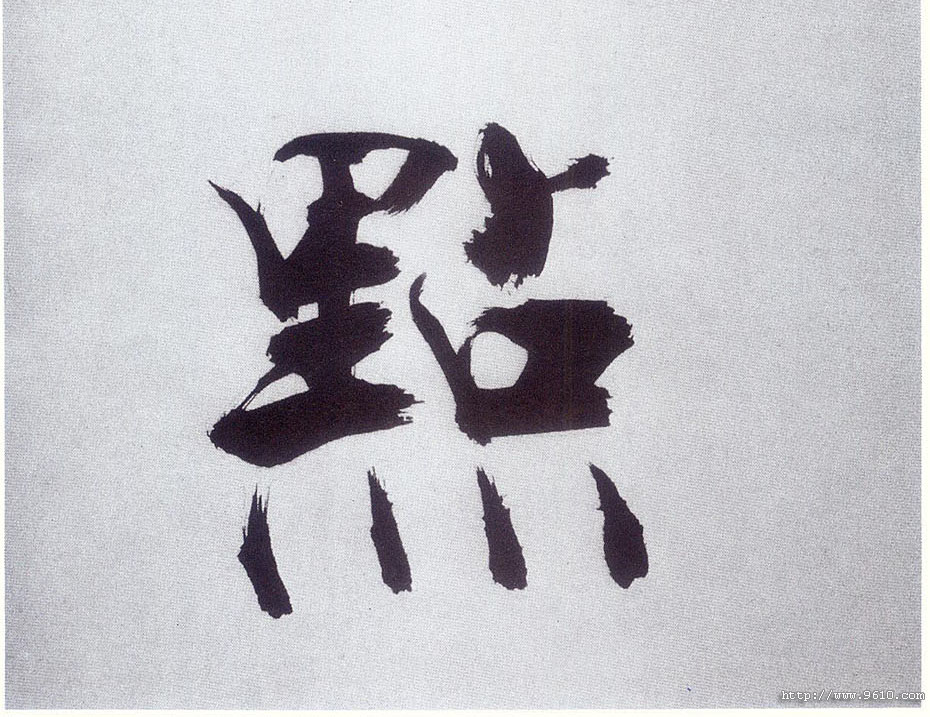 點
http://www.9610.com